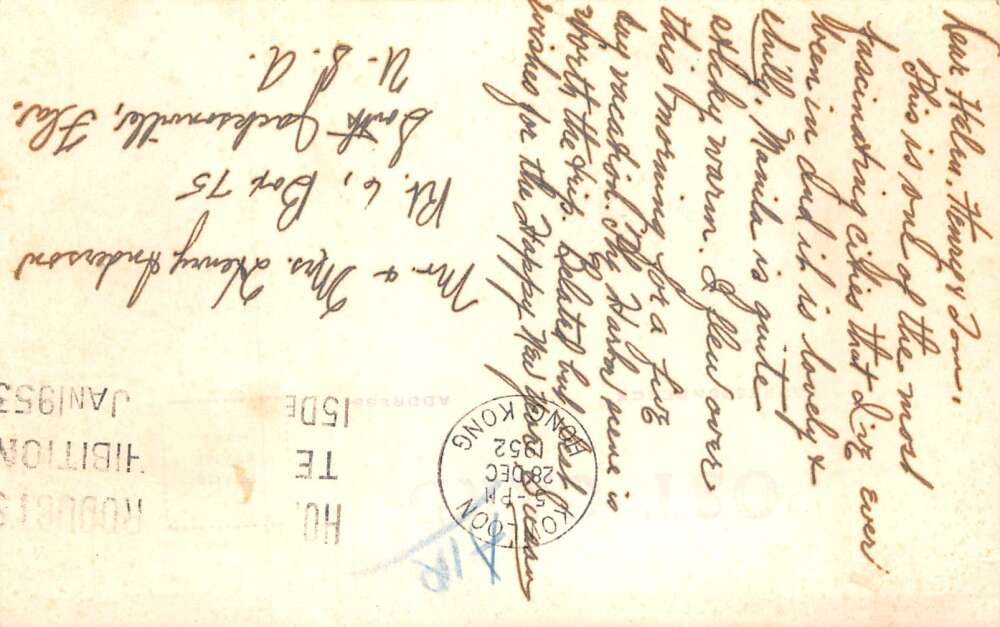 Dear Helen, Henry & Tom,
This is one of the most
fascinating cities that I've ever
been in and it is lovely &
chilly. Manila is quite
sticky warm. I flew over
this morning for a five
day vacation. The Harbor scene is
worth the trip. Belated but best
wishes for the Happy New Year.
AIR
KOWLOON
5-PM
28 DEC
1952
HONG KONG
HO
TE
15 DE
HIBITION
JAN 1953
Mr. & Mrs. Henry Anderson
Rt. 6, Box 75
South Jacksonville, Fla.
U.S.A.
ADDRESS